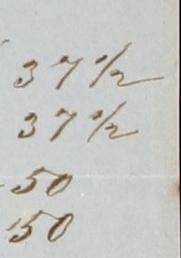 37 1/2
37 1/2
50
50